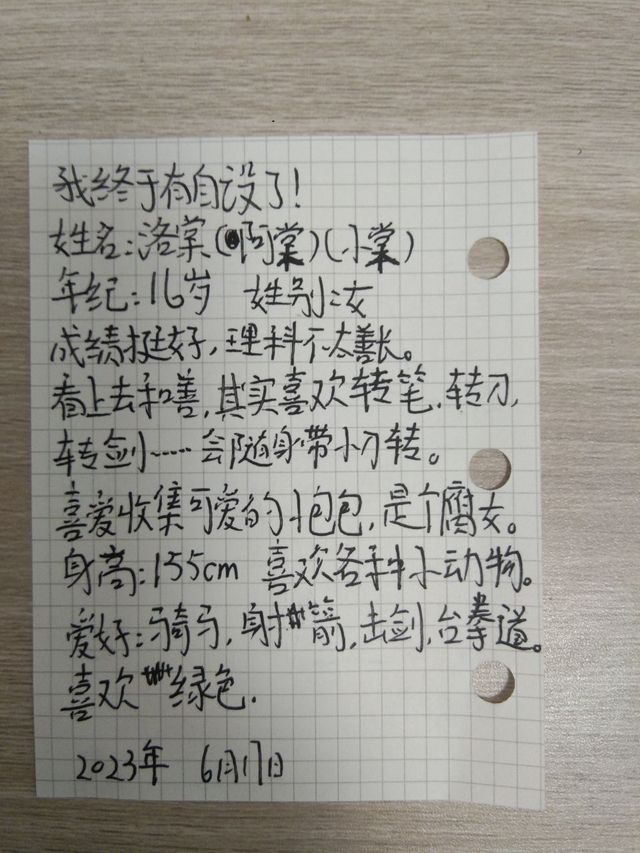 我终于有自设了!
姓名:洛棠(阿棠)(小棠)
年纪:16岁 姓别:女
成绩挺好,理科不太善长。
看上去和善,其实喜欢转笔,转刀,
转剑……会随身带小刀转。
喜爱收集可爱的小包包,是个腐女。
身高:155cm 喜欢各种小动物。
爱好:骑马,射箭,击剑,台拳道。
喜欢绿色.
2023年 6月17日